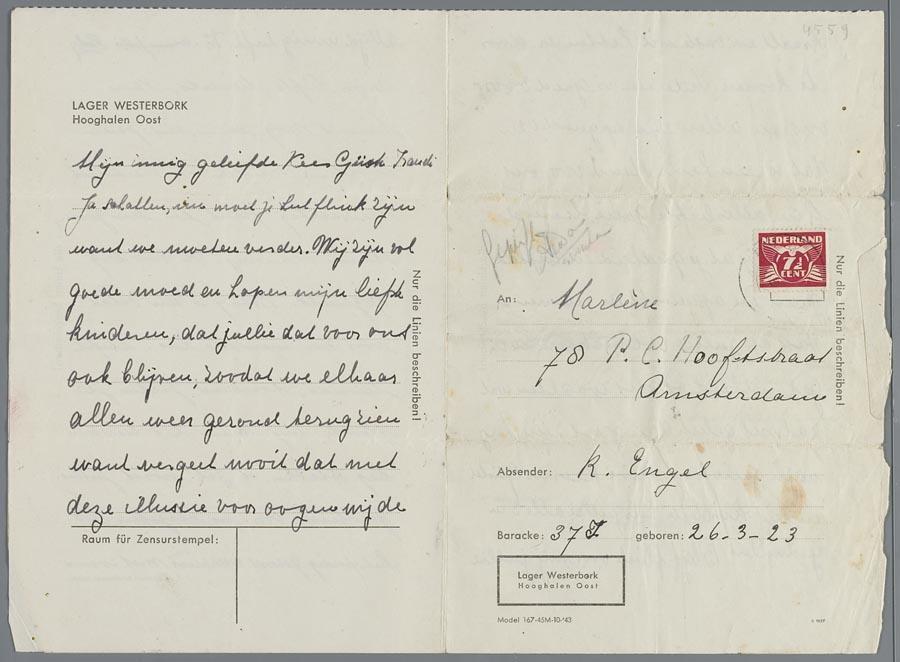 LAGER WESTERBORK
Hooghalen Oost
Mijn innig geliefde Kees Guusk
Ja schatten, nu moet je heel flink zijn
want we moeten verder. Wij zijn vol
goede moed en hopen mijn liefste
kinderen, dat jullie dat voor ons
ook blijven, zoodat we elkaar
allen weer gezond terugzien
want vergeet nooit dat met
deze illussie voor oogen wij de
Raum für Zensurstempel:
Nur die Linien beschreiben!
4559
NEDERLAND
7½
CENT
An: Marlène
78 P. C. Hooftstraat
Amsterdam
Nur die Linien beschreiben!
Absender: K. Engel
Baracke: 37 geboren: 26-3-23
Lager Westerbork
Hooghalen Oost
Model 167-45M-10-'43